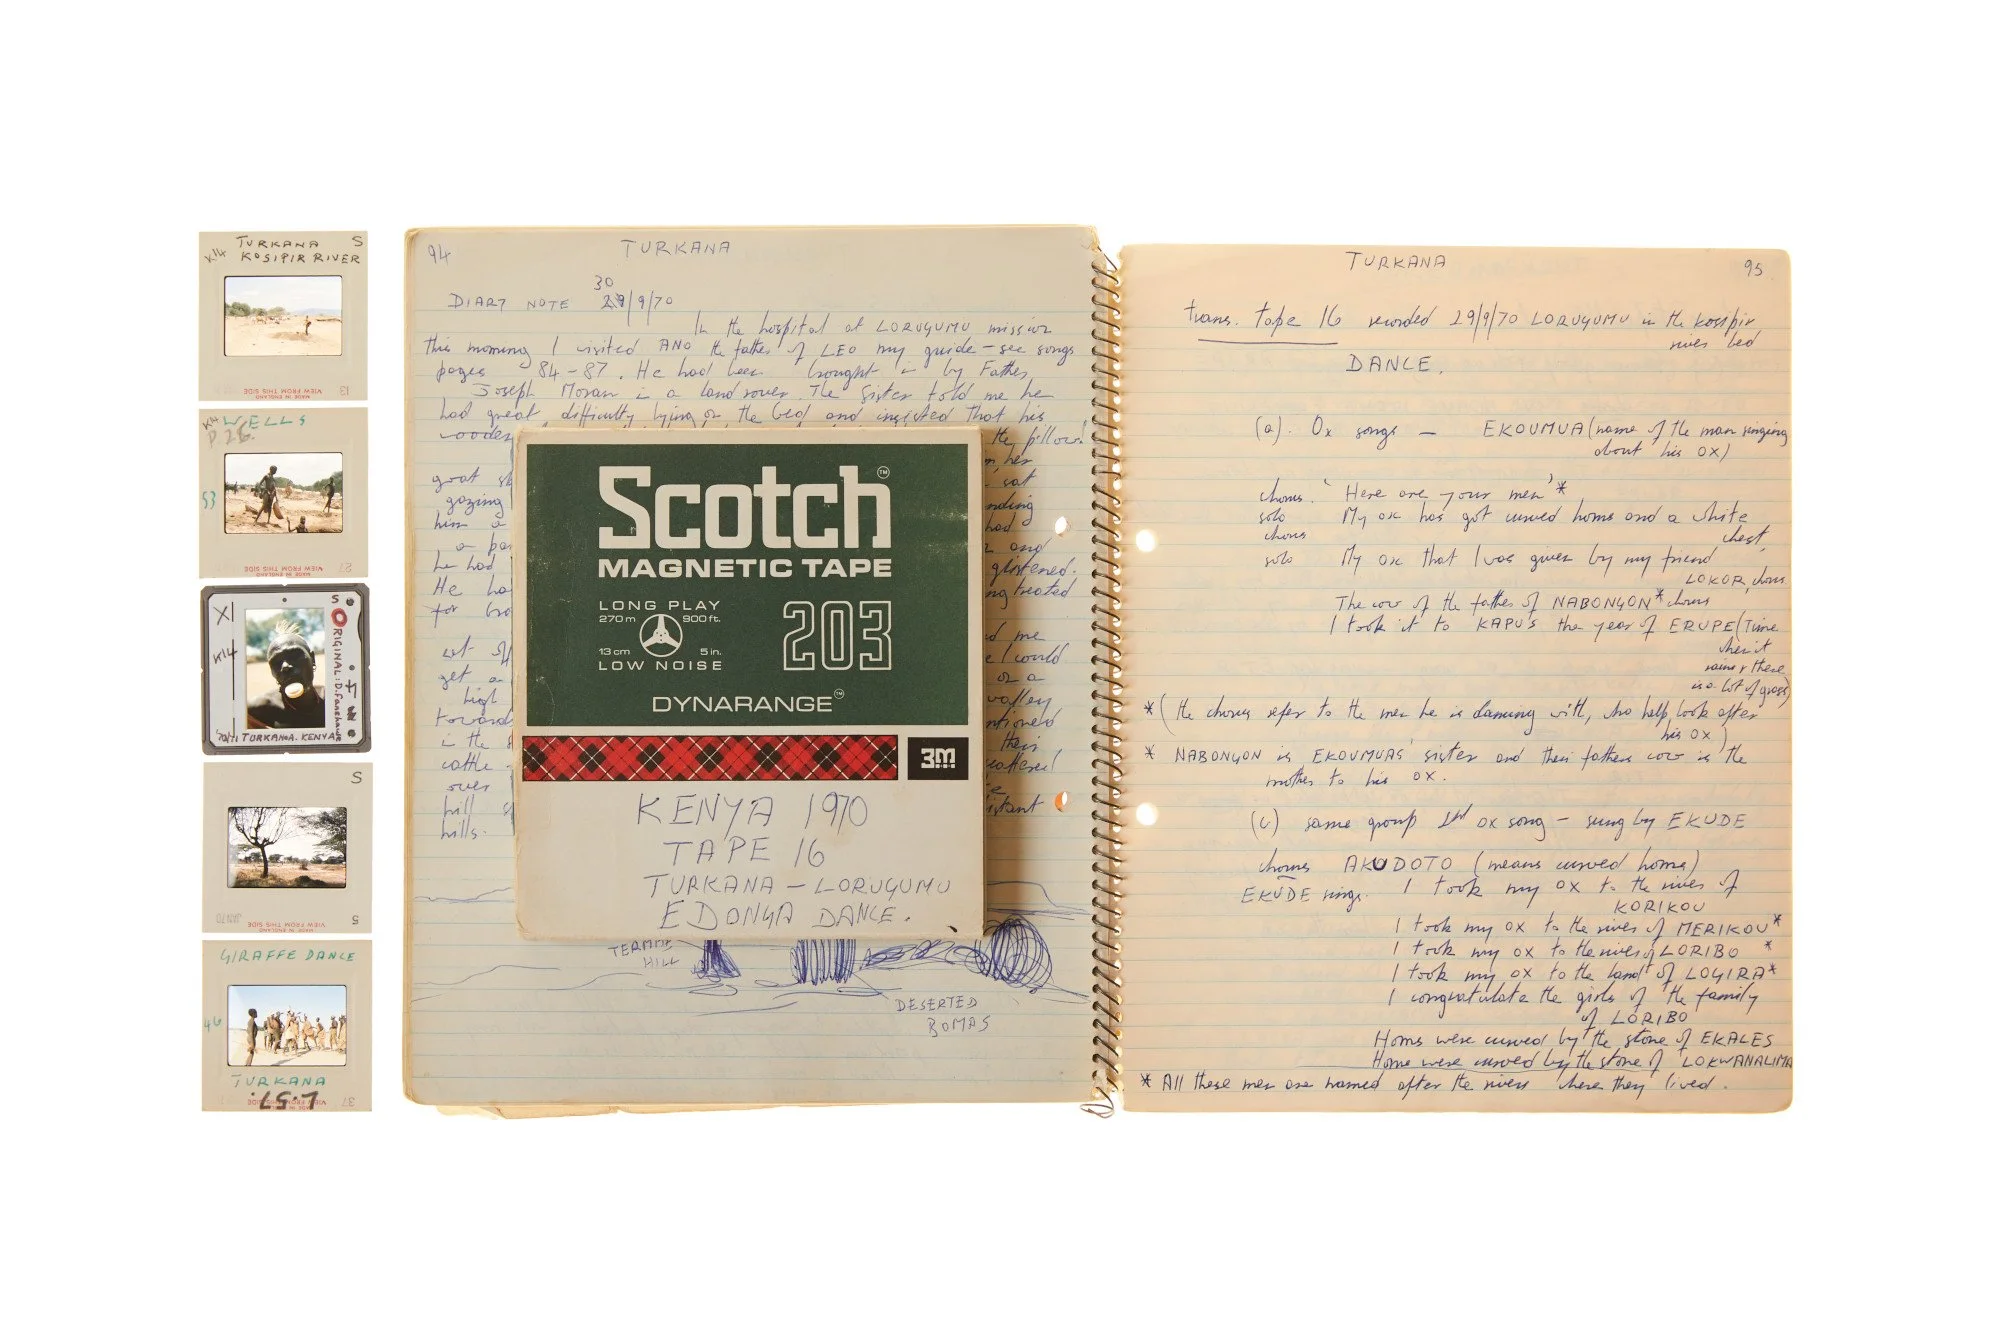 TURKANA S
K14
KOSIPIR RIVER
MADE IN ENGLAND
VIEW FROM THIS SIDE
13
K14 WELLS
P 26.
53
MADE IN ENGLAND
VIEW FROM THIS SIDE
27
XI
K14
S
ORIGINAL: D. Fanshawe
70/71 TURKANA. KENYA
S
MADE IN ENGLAND
VIEW FROM THIS SIDE
JAN70
5
GIRAFFE DANCE
46
TURKANA
L.57.
VIEW FROM THIS SIDE
37
94 TURKANA
30
DIARY NOTE 29/9/70
In the hospital at LORUGUMU mission
this morning I visited ANO the father of LEO my guide - see songs
pages 84-87. He had been brought in by Father
Joseph Moran in a land rover. The sister told me he
had great difficulty lying on the bed and insisted that his
wooden
the pillow
great
gazing
him a
he had
and
glistened.
He
treated
for
me
I could
get a
or a
high
valley
toward
in the
their
cattle
over
hill
hills.
TERMITE
HILL
DESERTED
BOMAS
Scotch™
MAGNETIC TAPE
LONG PLAY
270 m 900 ft.
13 cm 5 in.
LOW NOISE
203
DYNARANGE™
3M
KENYA 1970
TAPE 16
TURKANA - LORUGUMU
EDONGA DANCE.
TURKANA 95
trans. tape 16 recorded 29/9/70 LORUGUMU in the Kosipir
river bed
DANCE.
(a). Ox songs - EKOUMUA (name of the man singing
about his OX)
chorus. 'Here are your men'*
solo My ox has got curved horns and a white
chorus chest,
solo My ox that I was given by my friend
LOKOR, chorus
The cow of the father of NABONGON* chorus
I took it to KAPUS the year of ERUPE (Time
when it
rains & there
is a lot of grass)
* (the chorus refer to the men he is dancing with, who help look after
his OX)
* NABONGON is EKOUMUAS' sister and their fathers cow is the
mother to his OX.
(c) same group 2nd ox song - sung by EKUDE
chorus AKUDOTO (means curved horns)
EKUDE sings. I took my OX to the rives of
KORIKOU
I took my OX to the rives of MERIKOU*
I took my OX to the rives of LORIBO *
I took my OX to the land of LOGIRA*
I congratulate the girls of the family
of LORIBO
Horns were curved by the stone of EKALES
Horns were curved by the stone of LOKWANALIMA
* All these men are named after the rivers where they lived.